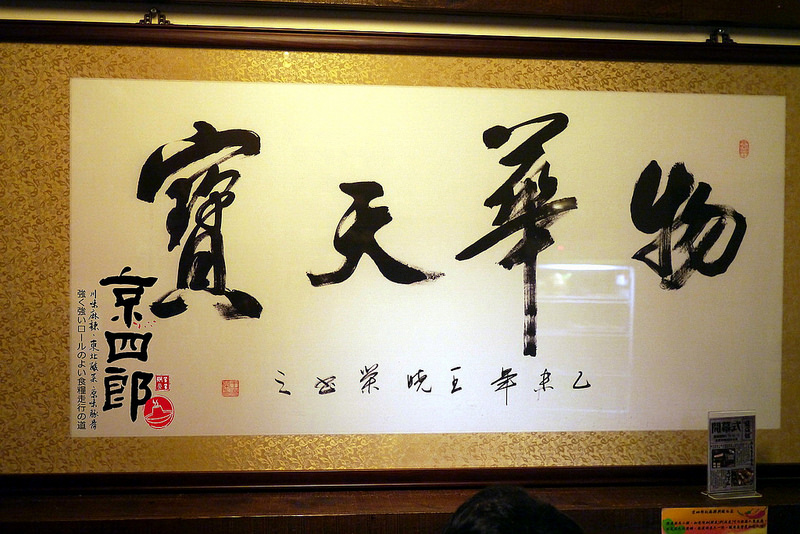 物華天寶
乙未年王曉榮書之
京四郎
川味麻辣、東北酸菜、京味勝膏
強く強いロールのよい食糧走行の道
開幕式